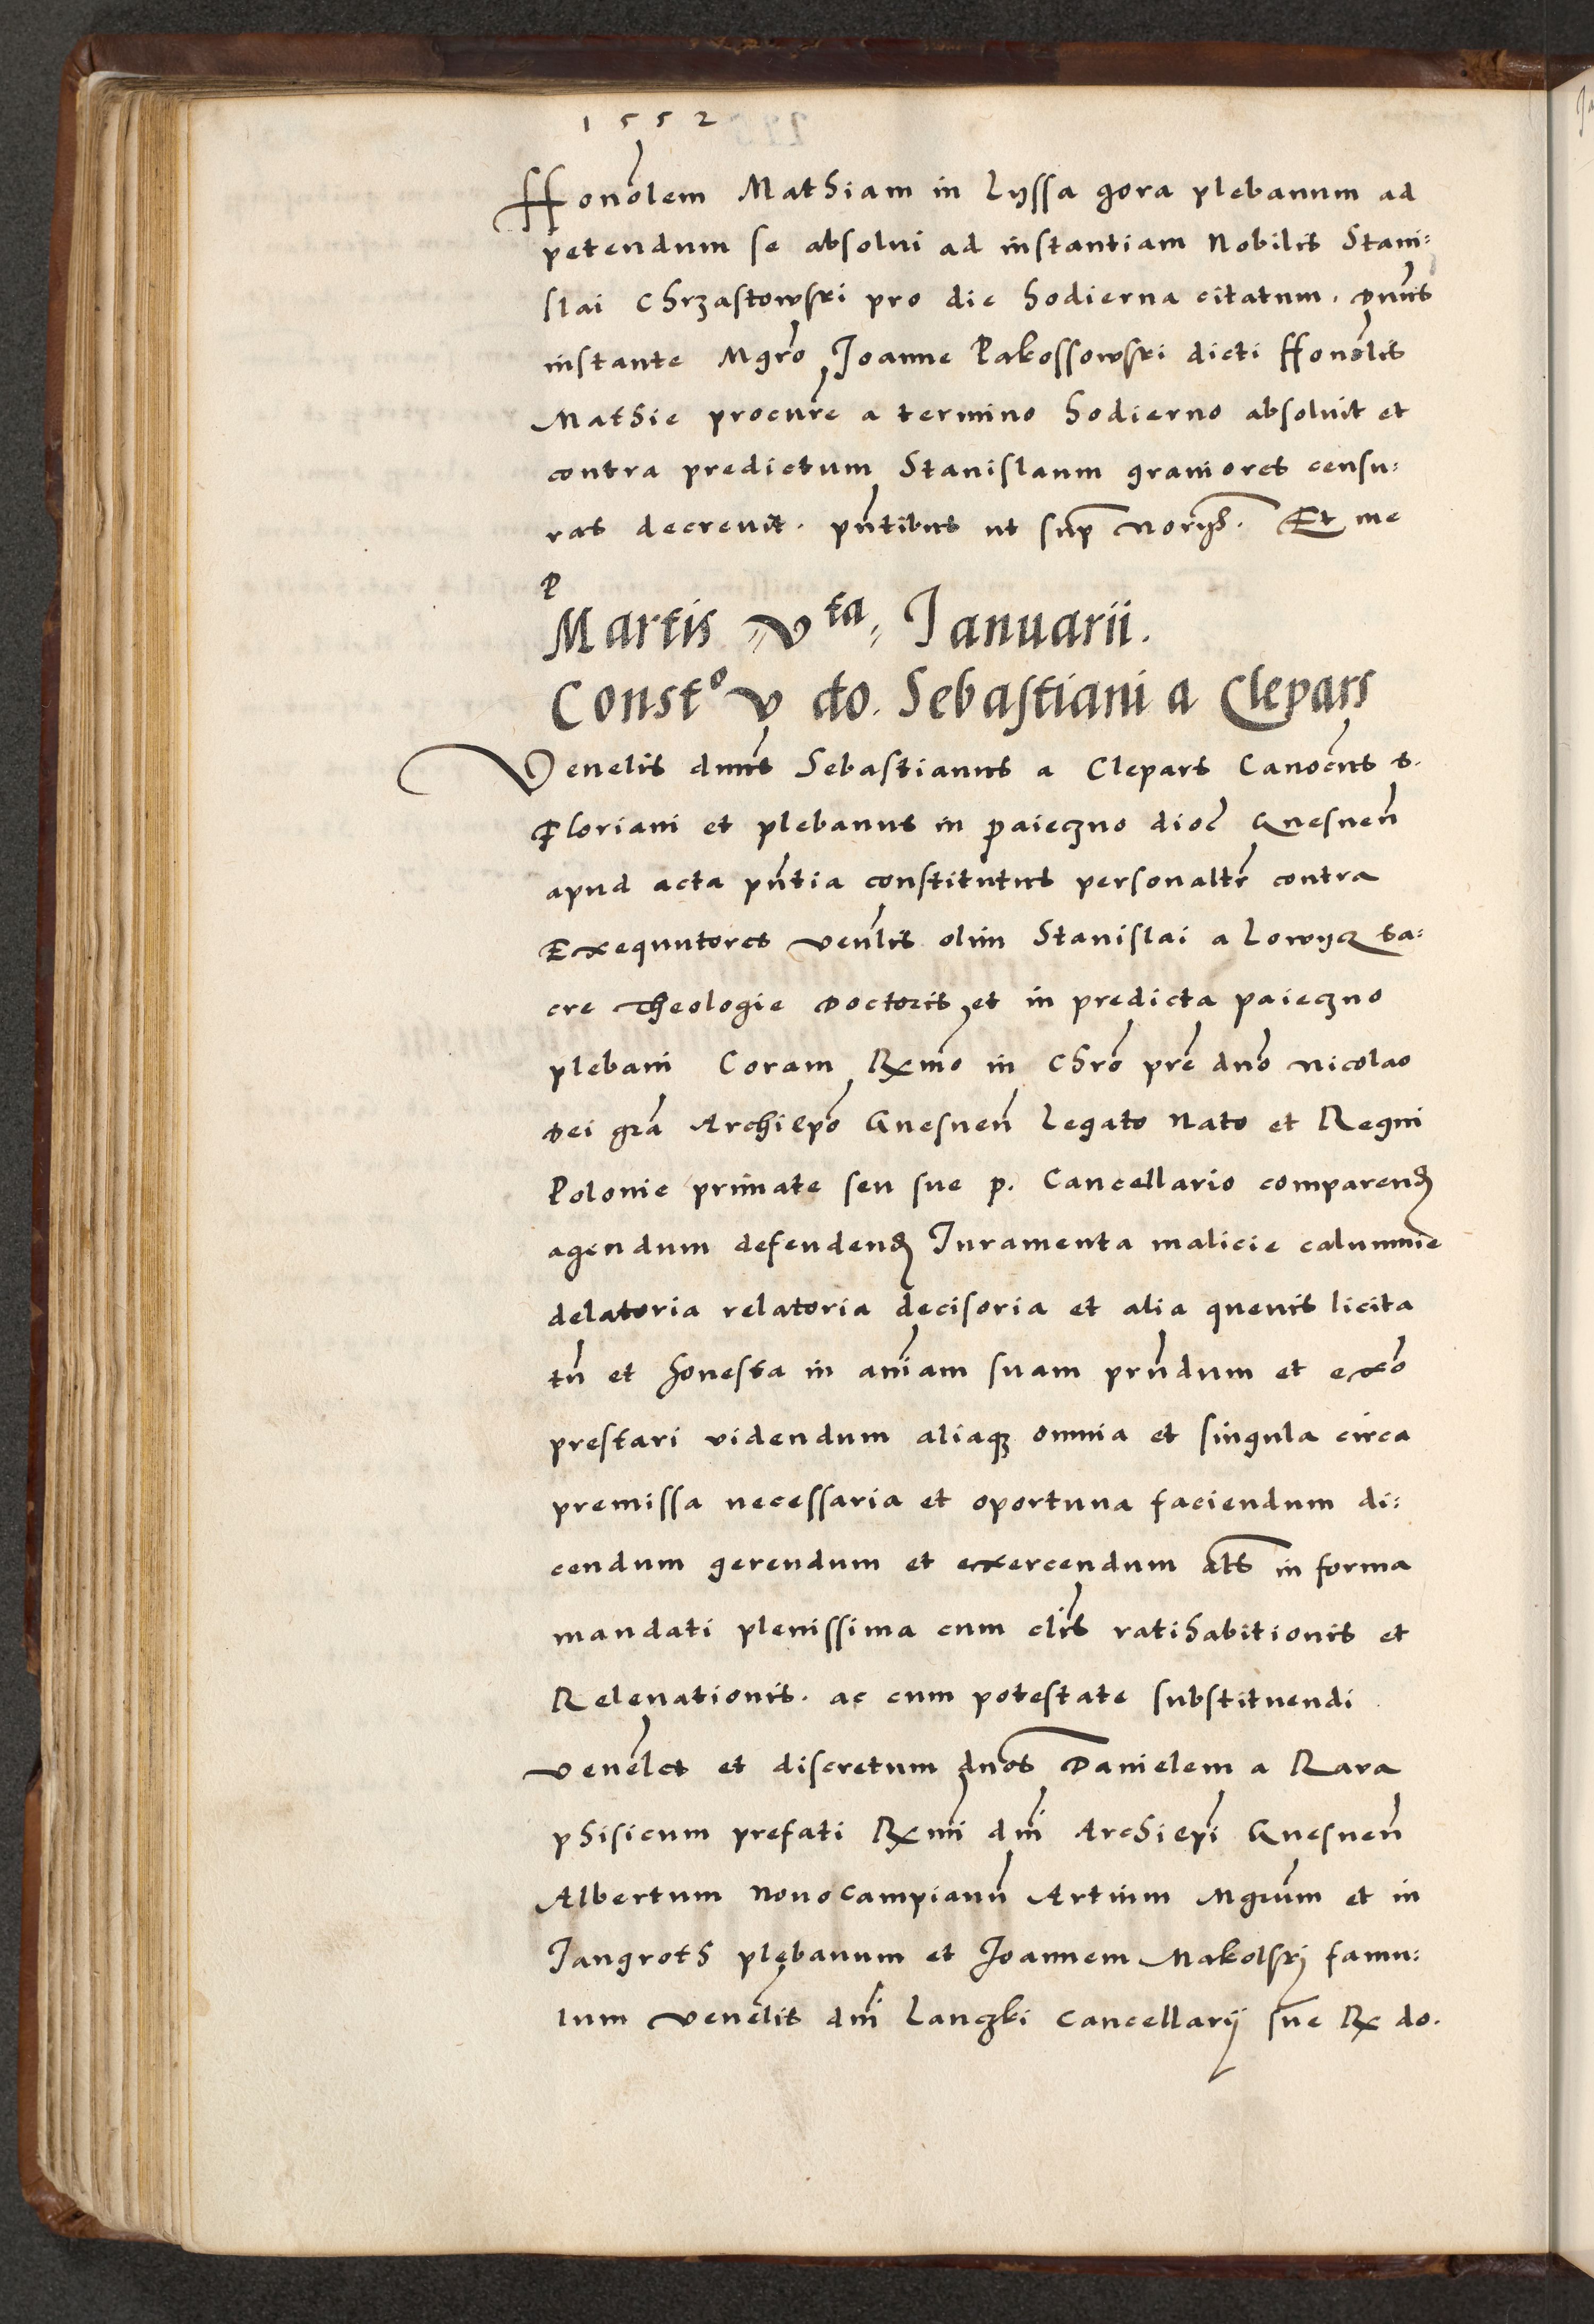 1552
Honõlem Mathiam in Lyssa gora plebanum ad
petendum se absolui ad instantiam Nobilis Stani:
slai Chrzastowski pro die hodierna citatum. Dnũs
instante Mgrõ Joanne Pakossowski dicti Honõlis
Mathie procurẽ a termino hodierno absoluit et
contra predictum Stanislaum grauiores censu:
ras decreuit. pñtibus ut sup Norijs. Et me
P
Martis v ta Januarii.
Const o v do. Sebastiani a Clepars
Venelis dnũs Sebastianus a Clepars Canocũs s.
Floriani et plebanus in Paieczno dioc̃ Gnesneñ
apud acta pñtia constitutus personalr̃ contra
Exequutores venl̃is olim Stanislai a Lowycz sa:
cre Theologie Doctoris, et in predicta paieczno
plebani Coram Rxmõ in Chrõ prẽ dnõ Nicolao
Dei grã Archiepõ Gnesneñ Legato Nato et Regni
Polonie primate seu sue p. Cancellario comparend
agendum defendend Juramenta malicie calumnie
delatoria relatoria decisoria et alia queuis licita
tñ et honesta in aniam suam prñdum et exõ
prestari videndum aliaq; omnia et singula circa
premissa necessaria et oportuna faciendum di:
cendum gerendum et exercendum als in forma
mandati plenissima cum clis̃ ratihabitionis et
Releuationis. ac cum potestate substituendi
venel̃es et discretum dnos Danielem a Rara
phisicum prefati Rxmi dni Archiepi Gnesneñ
Albertum Nouocampianũ Artium Mgrũm et in
Jangroth plebanum et Joannem Makolski famu:
lum venel̃is dni Lanczki Cancellarij sue Rx do.